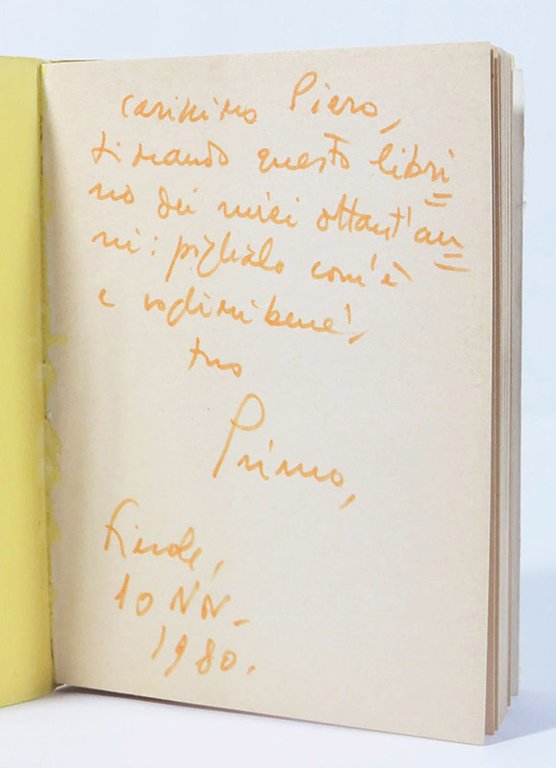 carissimo Piero,
ti mando questo libri=
no dei miei ottant'an=
ni: piglialo com'è
e voglimi bene!
tuo
Primo,
Fiesole,
10 NOV.
1980.